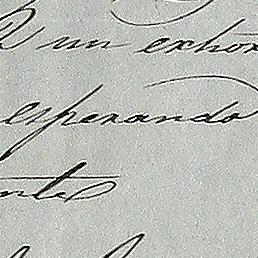 un exhor
esperando
nte